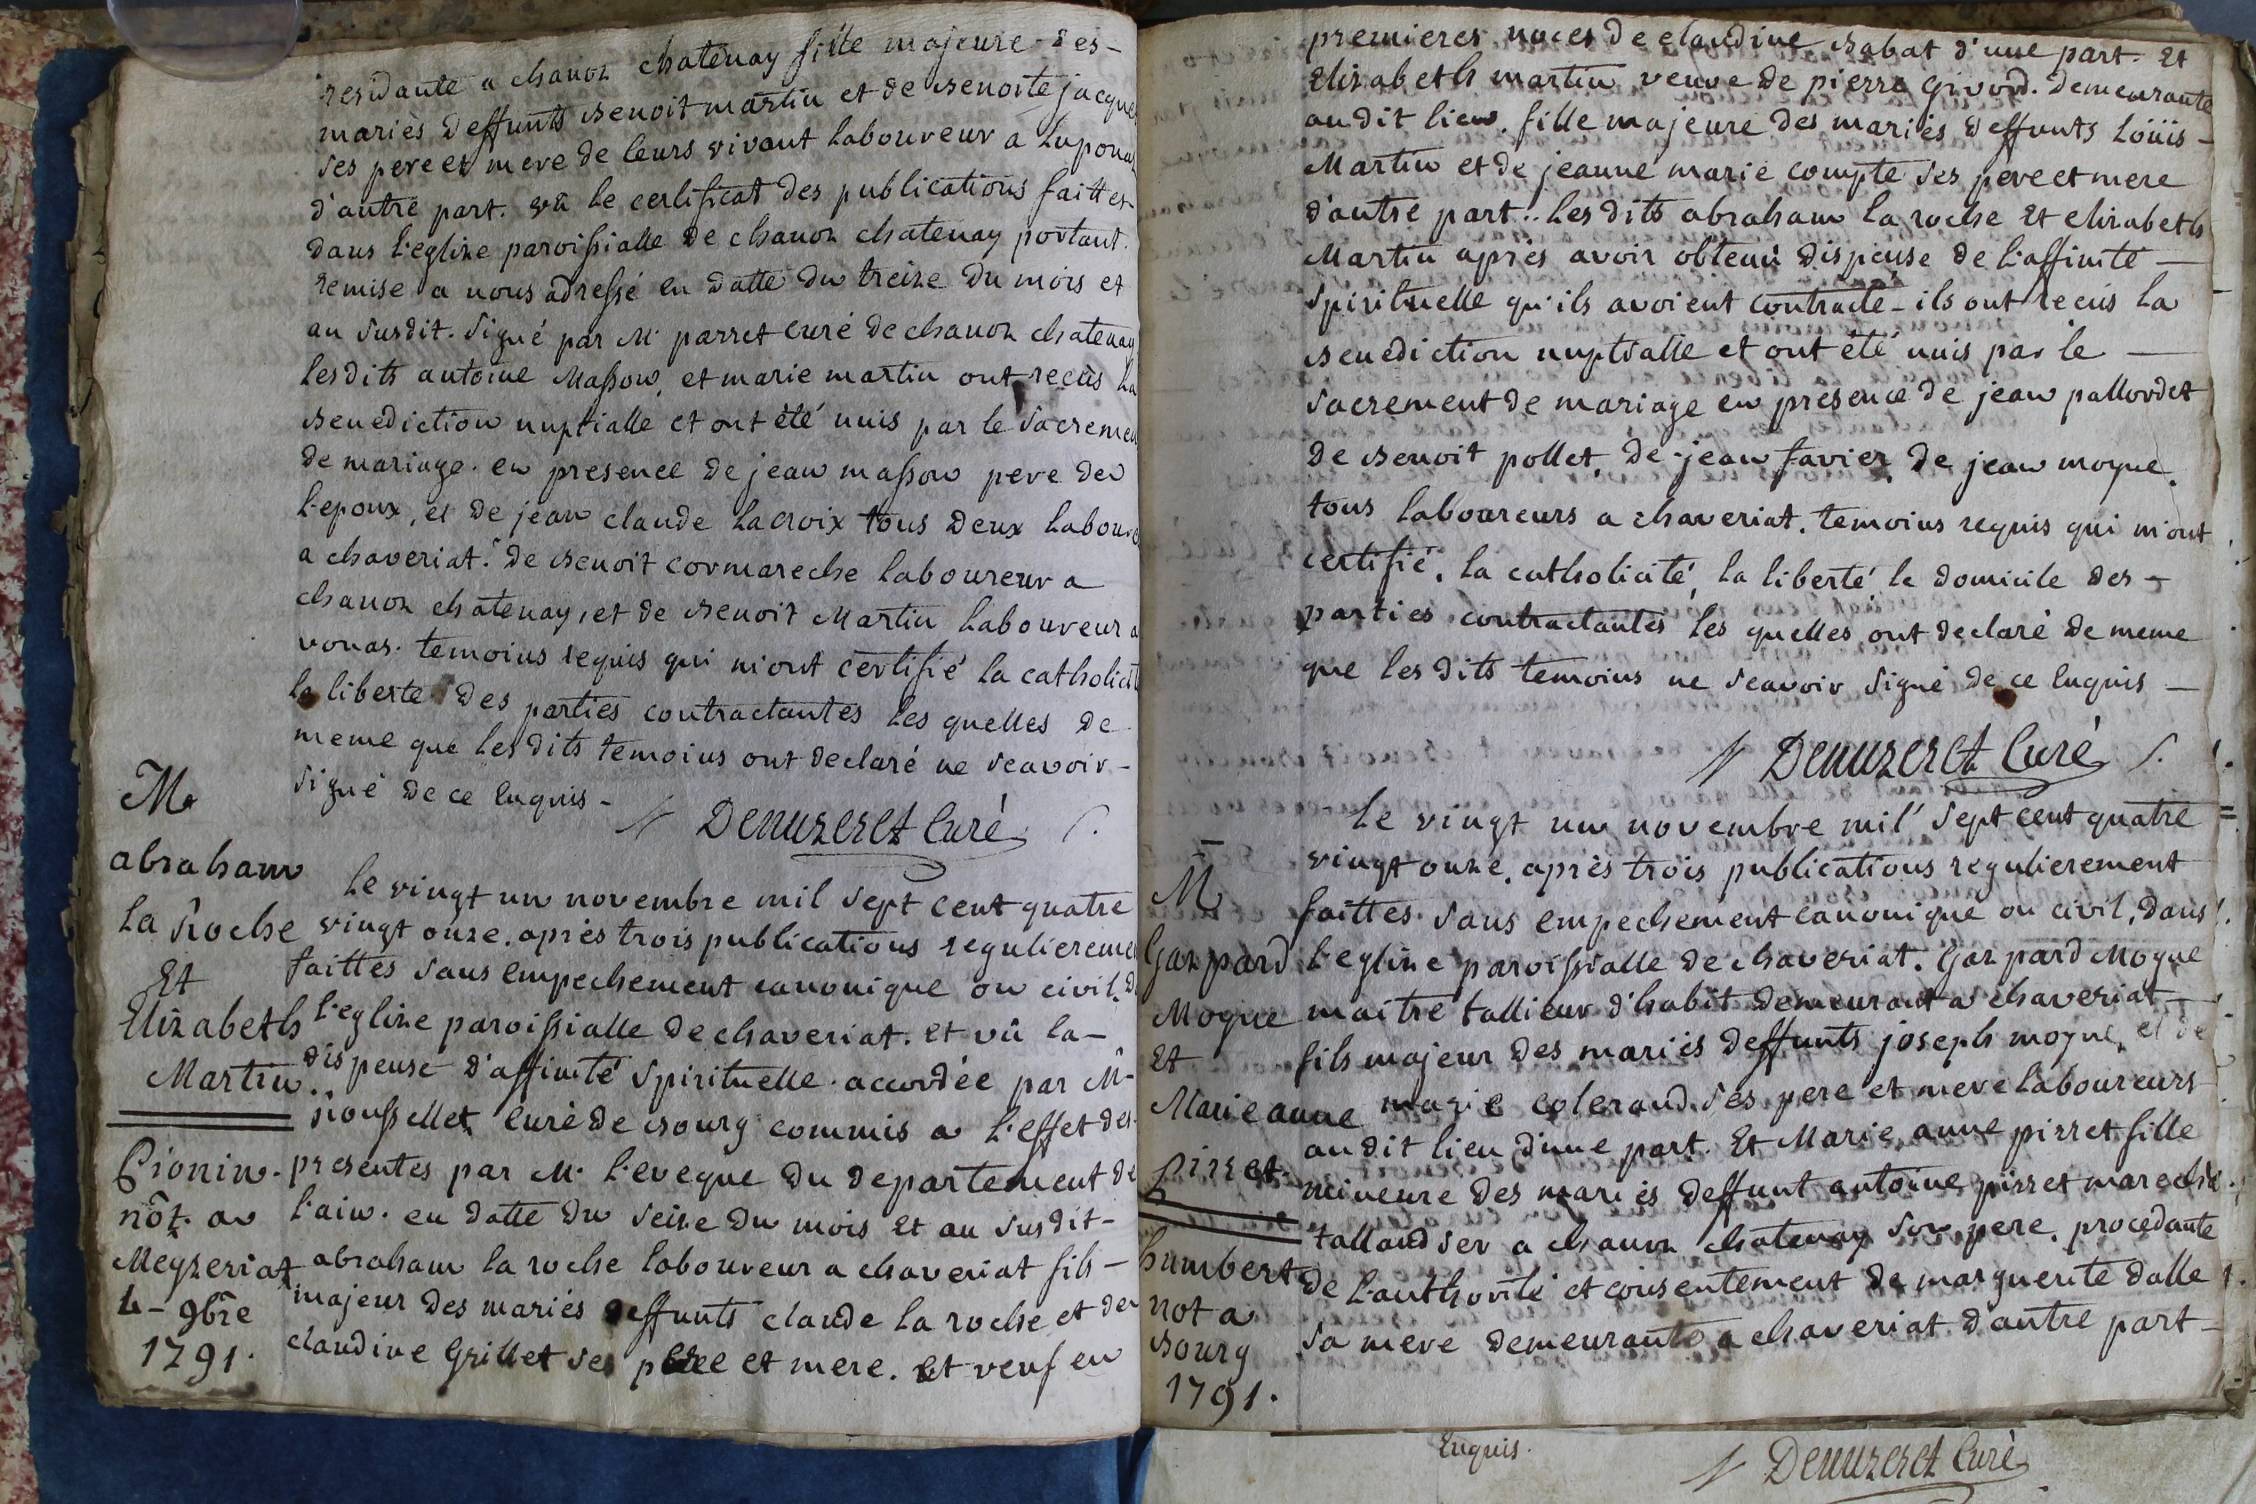 residante a chanoz chatenay fille majeure des-
mariès deffunts Benoit martin et de Benoite jacque
ses pere et mere de leurs vivant laboureur a luponas
d'autre part. vû le certificat des publications faittes-
dans l'eglize paroissialle de chanoz chatenay portant.
remise a nous adressé en datte du treize du mois et
an susdit. signé par Mr parret curé de chanoz chatenay
lesdits antoine Masson, et marie martin ont recûs la
Benediction nuptialle et ont été unis par le sacremen
de mariage. en presence de jean masson pere de
l'epoux, et de jean claude lacroix tous deux labour
a chaveriat. de Benoit cormareche laboureur a
chanoz chatenay, et de Benoit Martin laboureur a
vonas. temoins requis qui m'ont certifié la catholicité
la liberte des parties contractantes les quelles de
meme que les dits temoins ont declaré ne scavoir-
signé de ce Enquis-
Denuzeret Curé
M
abraham
la Roche
Et
Elizabeth
Martin.
Pionin.
nôt. a
Meyzeriat
4-9bre
1791.
le vingt un novembre mil sept cent quatre
vingt onze. après trois publications regulieremen
faittes sans Empechement canonique ou civil. d
l'eglize paroissialle de chaveriat. et vû la-
dispense d'affinité spirituelle. accordée par M-
roussellet Curé de Bourg commis a l'effet des
presentes par M. l'eveque du departement de
l'ain. en datte du seize du mois Et an susdit-
abraham la roche laboureur a chaveriat fils-
majeur des mariés deffunts claude la roche et de
claudine Grillet ses pere et mere. Et veuf en
premieres noces de claudine chabat d'une part. Et
Elizabeth martin veuve de pierre givord. demeurante
audit lieu. fille majeure des mariés deffunts Loüis-
Martin et de jeanne marie compte ses pere et mere
d'autre part.. les dits abraham la roche Et elizabeth
Martin après avoir obtenû dispense de l'affinité-
spirituelle qu'ils avoient contracté- ils ont recûs la
Benediction nuptialle et ont été unis par le-
sacrement de mariage en presence de jean pallordet
de Benoit pollet, de jean favier, de jean moyne.
tous laboureurs a chaveriat. temoins requis qui m'ont
certifié, la catholicité, la liberté le domicile des-
parties contractantes les quelles ont declaré de meme
que les dits temoins ne scavoir signé de ce Enquis-
Denuzeret Curé
M
Gazpard
Moyne
Et
Marie anne
Pirret.
humbert
not a
Bourg
1791.
le vingt un novembre mil sept cent quatre
vingt onze. après trois publications regulierement
faittes. sans empechement canonique ou civil, dans
l'eglize paroissialle de chaveriat. Gazpard Moyne
maitre tallieur d'habit demeurant a chaveriat-
fils majeur des mariés deffunts joseph moyne, et de
marie colerand. ses pere et mere laboureurs
audit lieu d'une part. Et Marie anne pirret fille
mineure des mariés deffunt antoine pirret marechal
tallandier a chanoz chatenay son pere. procedante
de l'authorité et consentement de marguerite dalle
sa mere demeurante a chaveriat d'autre part-
Enquis.
Denuzeret Curé